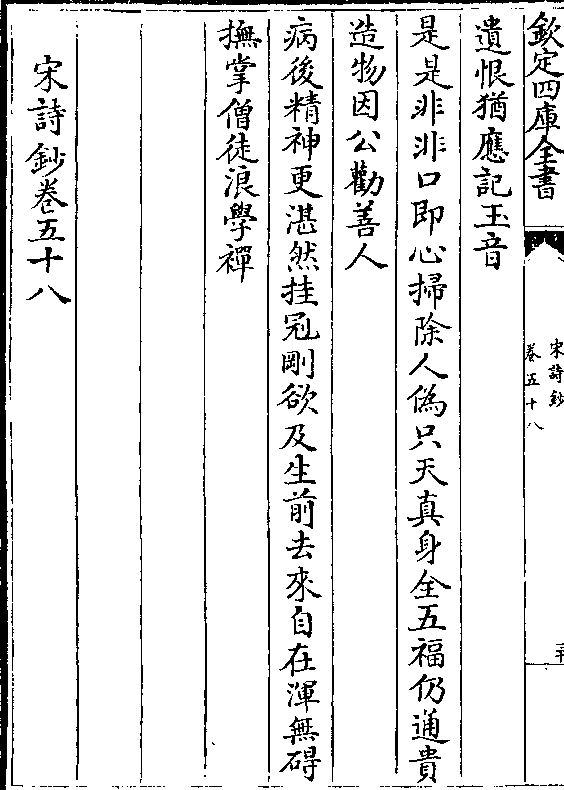 欽定四庫全書
宋詩鈔
卷五十八
遺恨猶應記玉音
是是非非口即心掃除人偽只天真身全五福仍通貴
造物因公勸善人
病後精神更湛然挂冠剛欲及生前去來自在渾無碍
撫掌僧徒浪學禪
宋詩鈔卷五十八